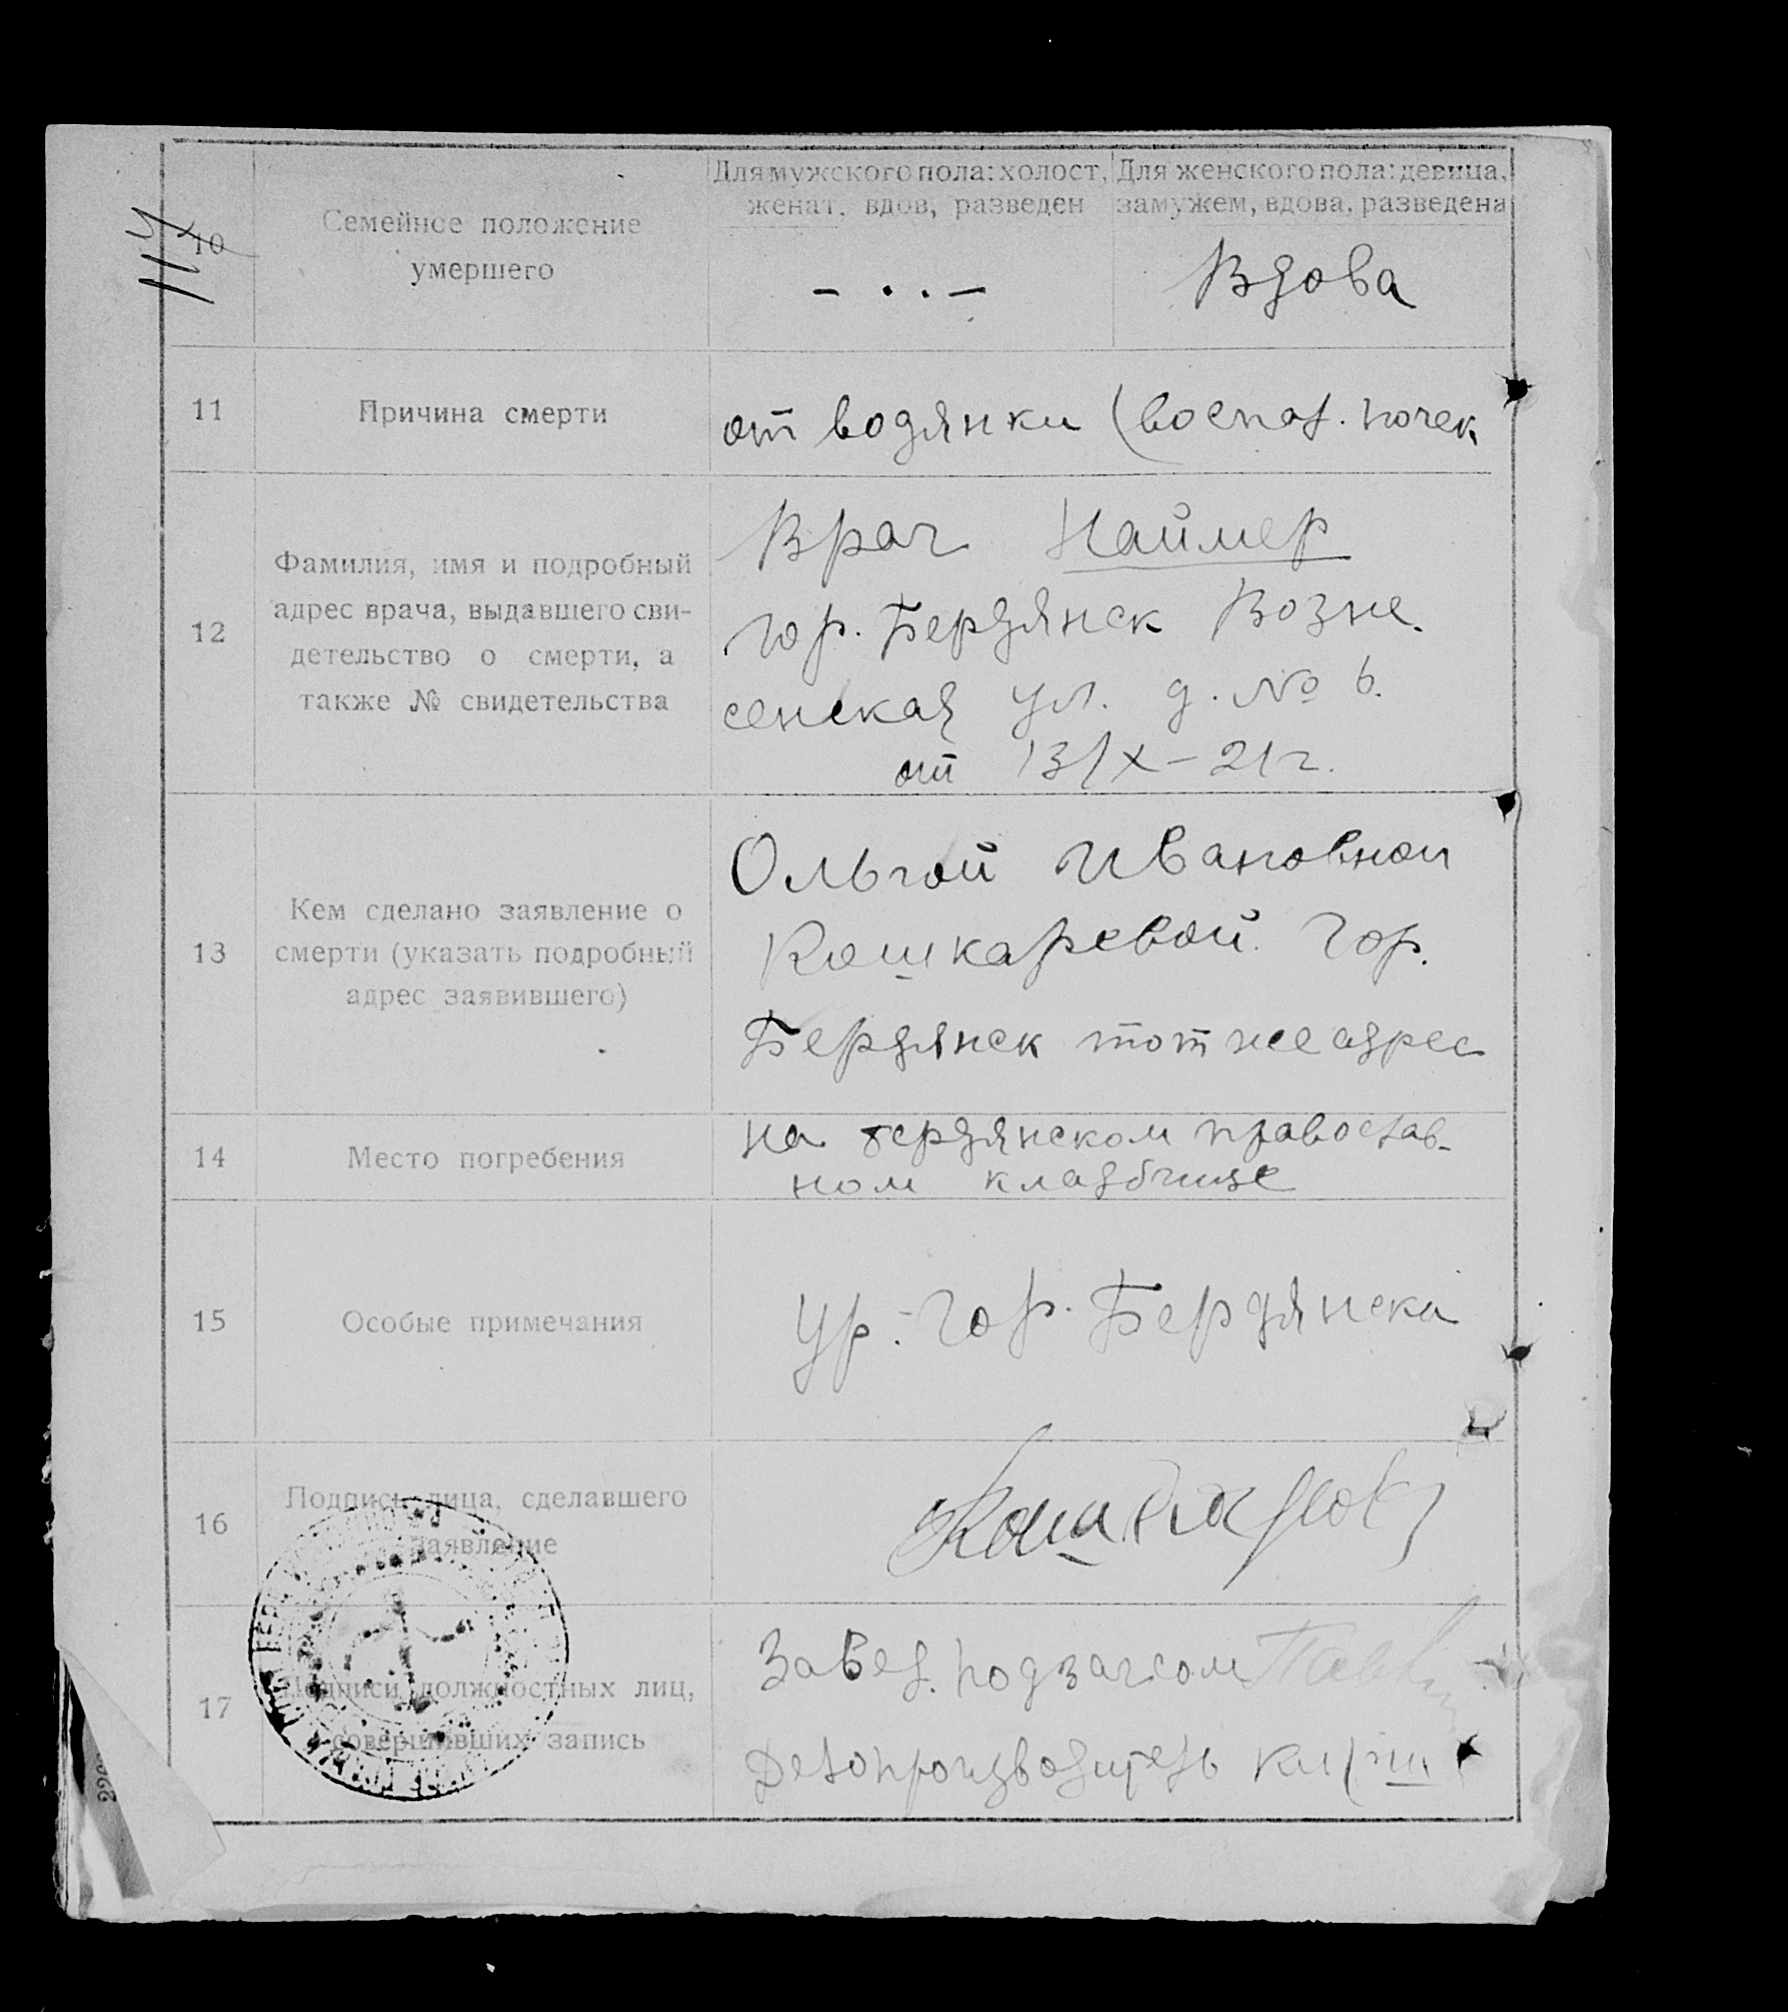 114
Для мужского пола: холост, женат, вдов, разведен
Для женского пола: девица, замужем, вдова, разведена
10
Семейное положение
умершего
— · · —
Вдова
11
Причина смерти
от водянки (воспал. почек
12
Фамилия, имя и подробный
адрес врача, выдавшего сви-
детельство о смерти, а
также № свидетельства
Врач Наймер
гор. Бердянск Возне-
сенская ул. д. № 6.
от 13/X – 21 г.
13
Кем сделано заявление о
смерти (указать подробный
адрес заявившего)
Ольгой Ивановной
Кошкаревой. Гор.
Бердянск тот же адрес
14
Место погребения
на бердянском православ-
ном кладбище
15
Особые примечания
ур. гор. Бердянска
16
Подпись лица, сделавшего
заявление
17
Подписи должностных лиц,
совершивших запись
Завед. подзагсом
Делопроизводитель